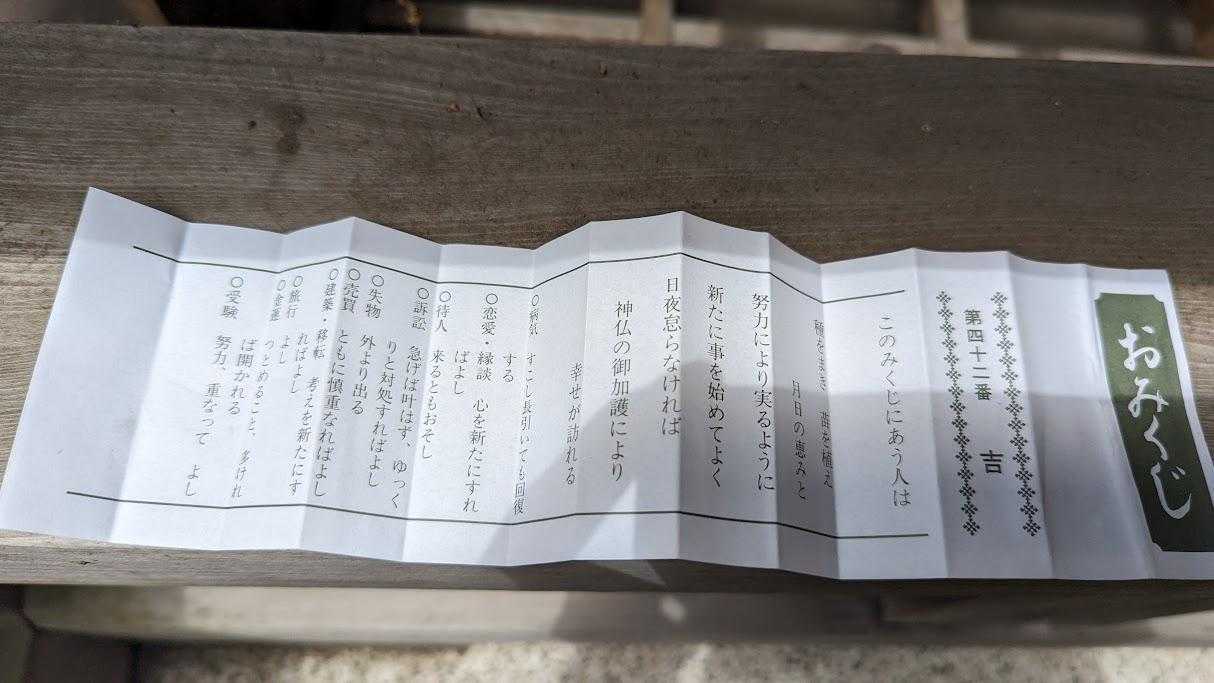 おみくじ
第四十二番 吉
このみくじにあう人は
種をまき 苗を植え
月日の恵みと
努力により実るように
新たに事を始めてよく
日夜怠らなければ
神仏の御加護により
幸せが訪れる
○病気 すこし長引いても回復
する
○恋愛・縁談 心を新たにすれ
ばよし
○待人 来るともおそし
○訴訟 急げば叶はず、ゆっく
りと対処すればよし
○失物 外より出る
○売買 ともに慎重なればよし
○建築・移転 考えを新たにす
ればよし
○旅行 よし
○金運 つとめること、多ければ
ば開かれる
○受験 努力、重なって よし